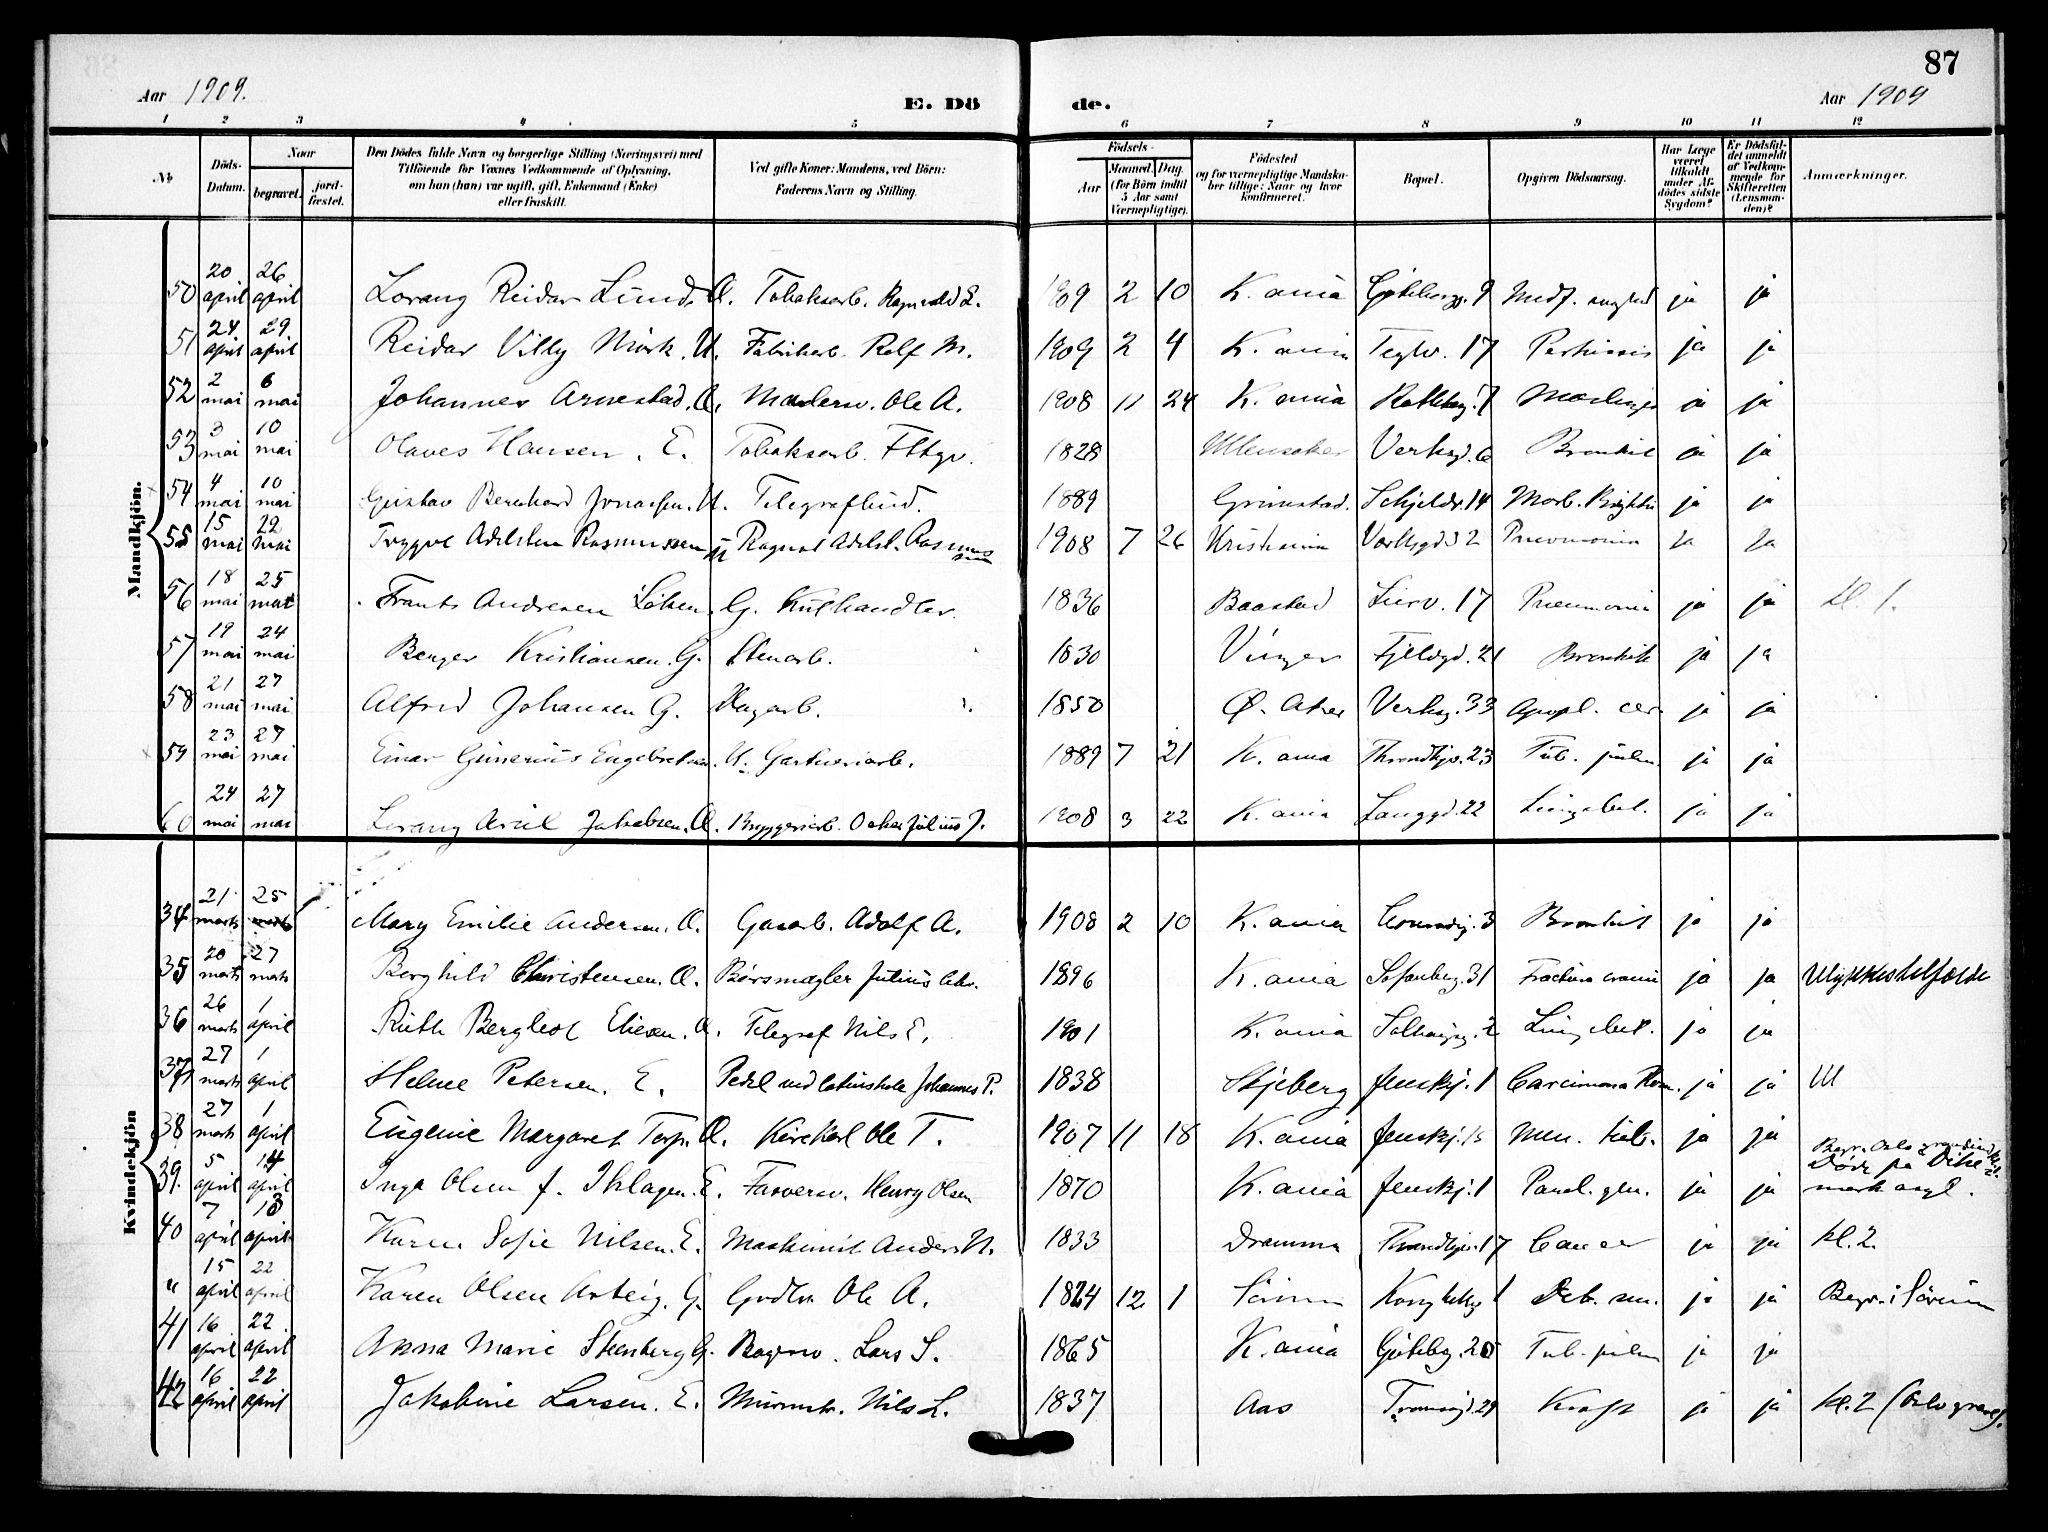 87
Aar 1909. E. Dö de. Aar 1909
1 2 3 4 5 6 7 8 9 10 11 12
№ Döds-Datum. Naar begravet. jord-fæstet. Den Dödes fulde Navn og borgerlige Stilling (Næringsvei) med Tilföiende for Voxnes Vedkommende af Oplysning, om han (hun) var ugift, gift, Enkemand (Enke) eller fraskilt. Ved gifte Koner: Mandens, ved Börn: Faderens Navn og Stilling. Födsels- Aar Maaned. Dag. (for Börn indtil 5 Aar samt Værnepligtige). Födested og for værnepligtige Mandskaber tillige: Naar og hvor konfirmeret. Bopæl. Opgiven Dödsaarsag. Har Læge været tilkaldt under Afdödes sidste Sygdom? Er Dödsfaldet anmeldt af Vedkommende for Skifteretten (Lensmanden)? Anmærkninger.
Mandkjön.
50 20 april 26 april Lorang Reidar Lund. U. Tobaksarb. Ragnvald L. 1909 2 10 K.ania Göteborgg. 9 Medf. ja ja
51 24 april 29 april Reidar Villy Mörk. U. Fabrikarb. Rolf M. 1909 2 4 K.ania Teglv. 17 Pertussis ja ja
52 2 mai 6 mai Johannes Arnestad. U. Malersv. Ole A. 1908 11 24 K.ania 7 Mæslinger ja ja
53 3 mai 10 mai Olaves Hansen. E. Tobaksarb. Fttgv. 1828 Ullensaker Verksgd. 6 Bronkit ja ja
54 4 mai 10 mai Gustav Bernhard Jonassen. U. Telegrafbud. 1889 Grimstad. Schjeldr. 14 Morb. Brightii ja ja
55 15 mai 22 mai Trygve Adelsten Rasmussen U Ragnar Adelst. Rasmussen 1908 7 26 Kristiania Verksgd 32 Pneumonia ja ja
56 18 mai 25 mai Frants Andresen Löken. G. Kulhandler. 1836 Baastad Lierv. 17 Pneumonia ja ja kl. 1.
57 19 mai 24 mai Berger Kristiansen. G. Stenarb. 1830 Vinger Fjeldgd. 21 Bronkit ja ja
58 21 mai 27 mai Alfred Johansen G. Dagarb. 1850 Ø. Aker Verksg. 33 Apopl. cer. ja ja
59 23 mai 27 mai Einar Gunerius Engebretsen. U. Gartneriarb. 1889 7 21 K.ania Throndhjv. 23 Tub. pulm. ja ja
60 24 mai 27 mai Lorang Arild Jakobsen. U. Bryggeriarb. Oskar Julius J. 1908 3 22 K.ania Langgd. 22 Lungebet. ja ja
Kvindekjön
34 21 marts 25 marts Mary Emilie Andersen. U. Gasarb. Adolf A. 1908 2 10 K.ania Conradig. 3 Bronkit ja ja
35 20 marts 27 marts Berghild Christensen. U. Börsmægler Julius Chr. 1896 K.ania Sofienberg. 31 Fractura cranii ja ja Ulykkestilfælde
36 26 marts 1 april Ruth Bergliot Eliesen. U. Telegraf Nils E. 1901 K.ania 2 Lungebet. ja ja
37 27 marts 1 april Helene Petersen. E. Pedel ved latinskole Johannes P. 1838 Skjeberg Jenskj. 1 Carcinoma ja ja Ul
38 27 marts 1 april Eugenie Margaret Torp. U. Kirkekarl Ole T. 1907 11 18 K.ania Jenskj. 15 Men. tub. ja ja
39. 5 april 14 april Inga Olsen f. Ihlagen. E. Farversv. Henry Olsen 1870 K.ania Jenskj. 1 Paral. gen. ja ja Død på Dikemark asyl.
40 7 april 13 april Karen Sofie Nilsen. E. Maskinist Anders N. 1833 Drammen Throndhjv. 17 Cancer ja ja kl. 2.
" 15 april 22 april Karen Olsen Asteig. G. Grdbr Ole A. 1824 12 1 Sörum 1 Deb. sen. ja ja Begr. i Sörum
41 16 april 22 april Anna Marie Stenberg G. Bagersv. Lars S. 1865 K.ania Götebg. 20 Tub. pulm ja ja
42 16 april 22 april Jakobine Larsen. E. Murmstr. Nils L. 1837 Aas Tromsögd. 29 Kræft ja ja kl. 2 (Oslo gravl).